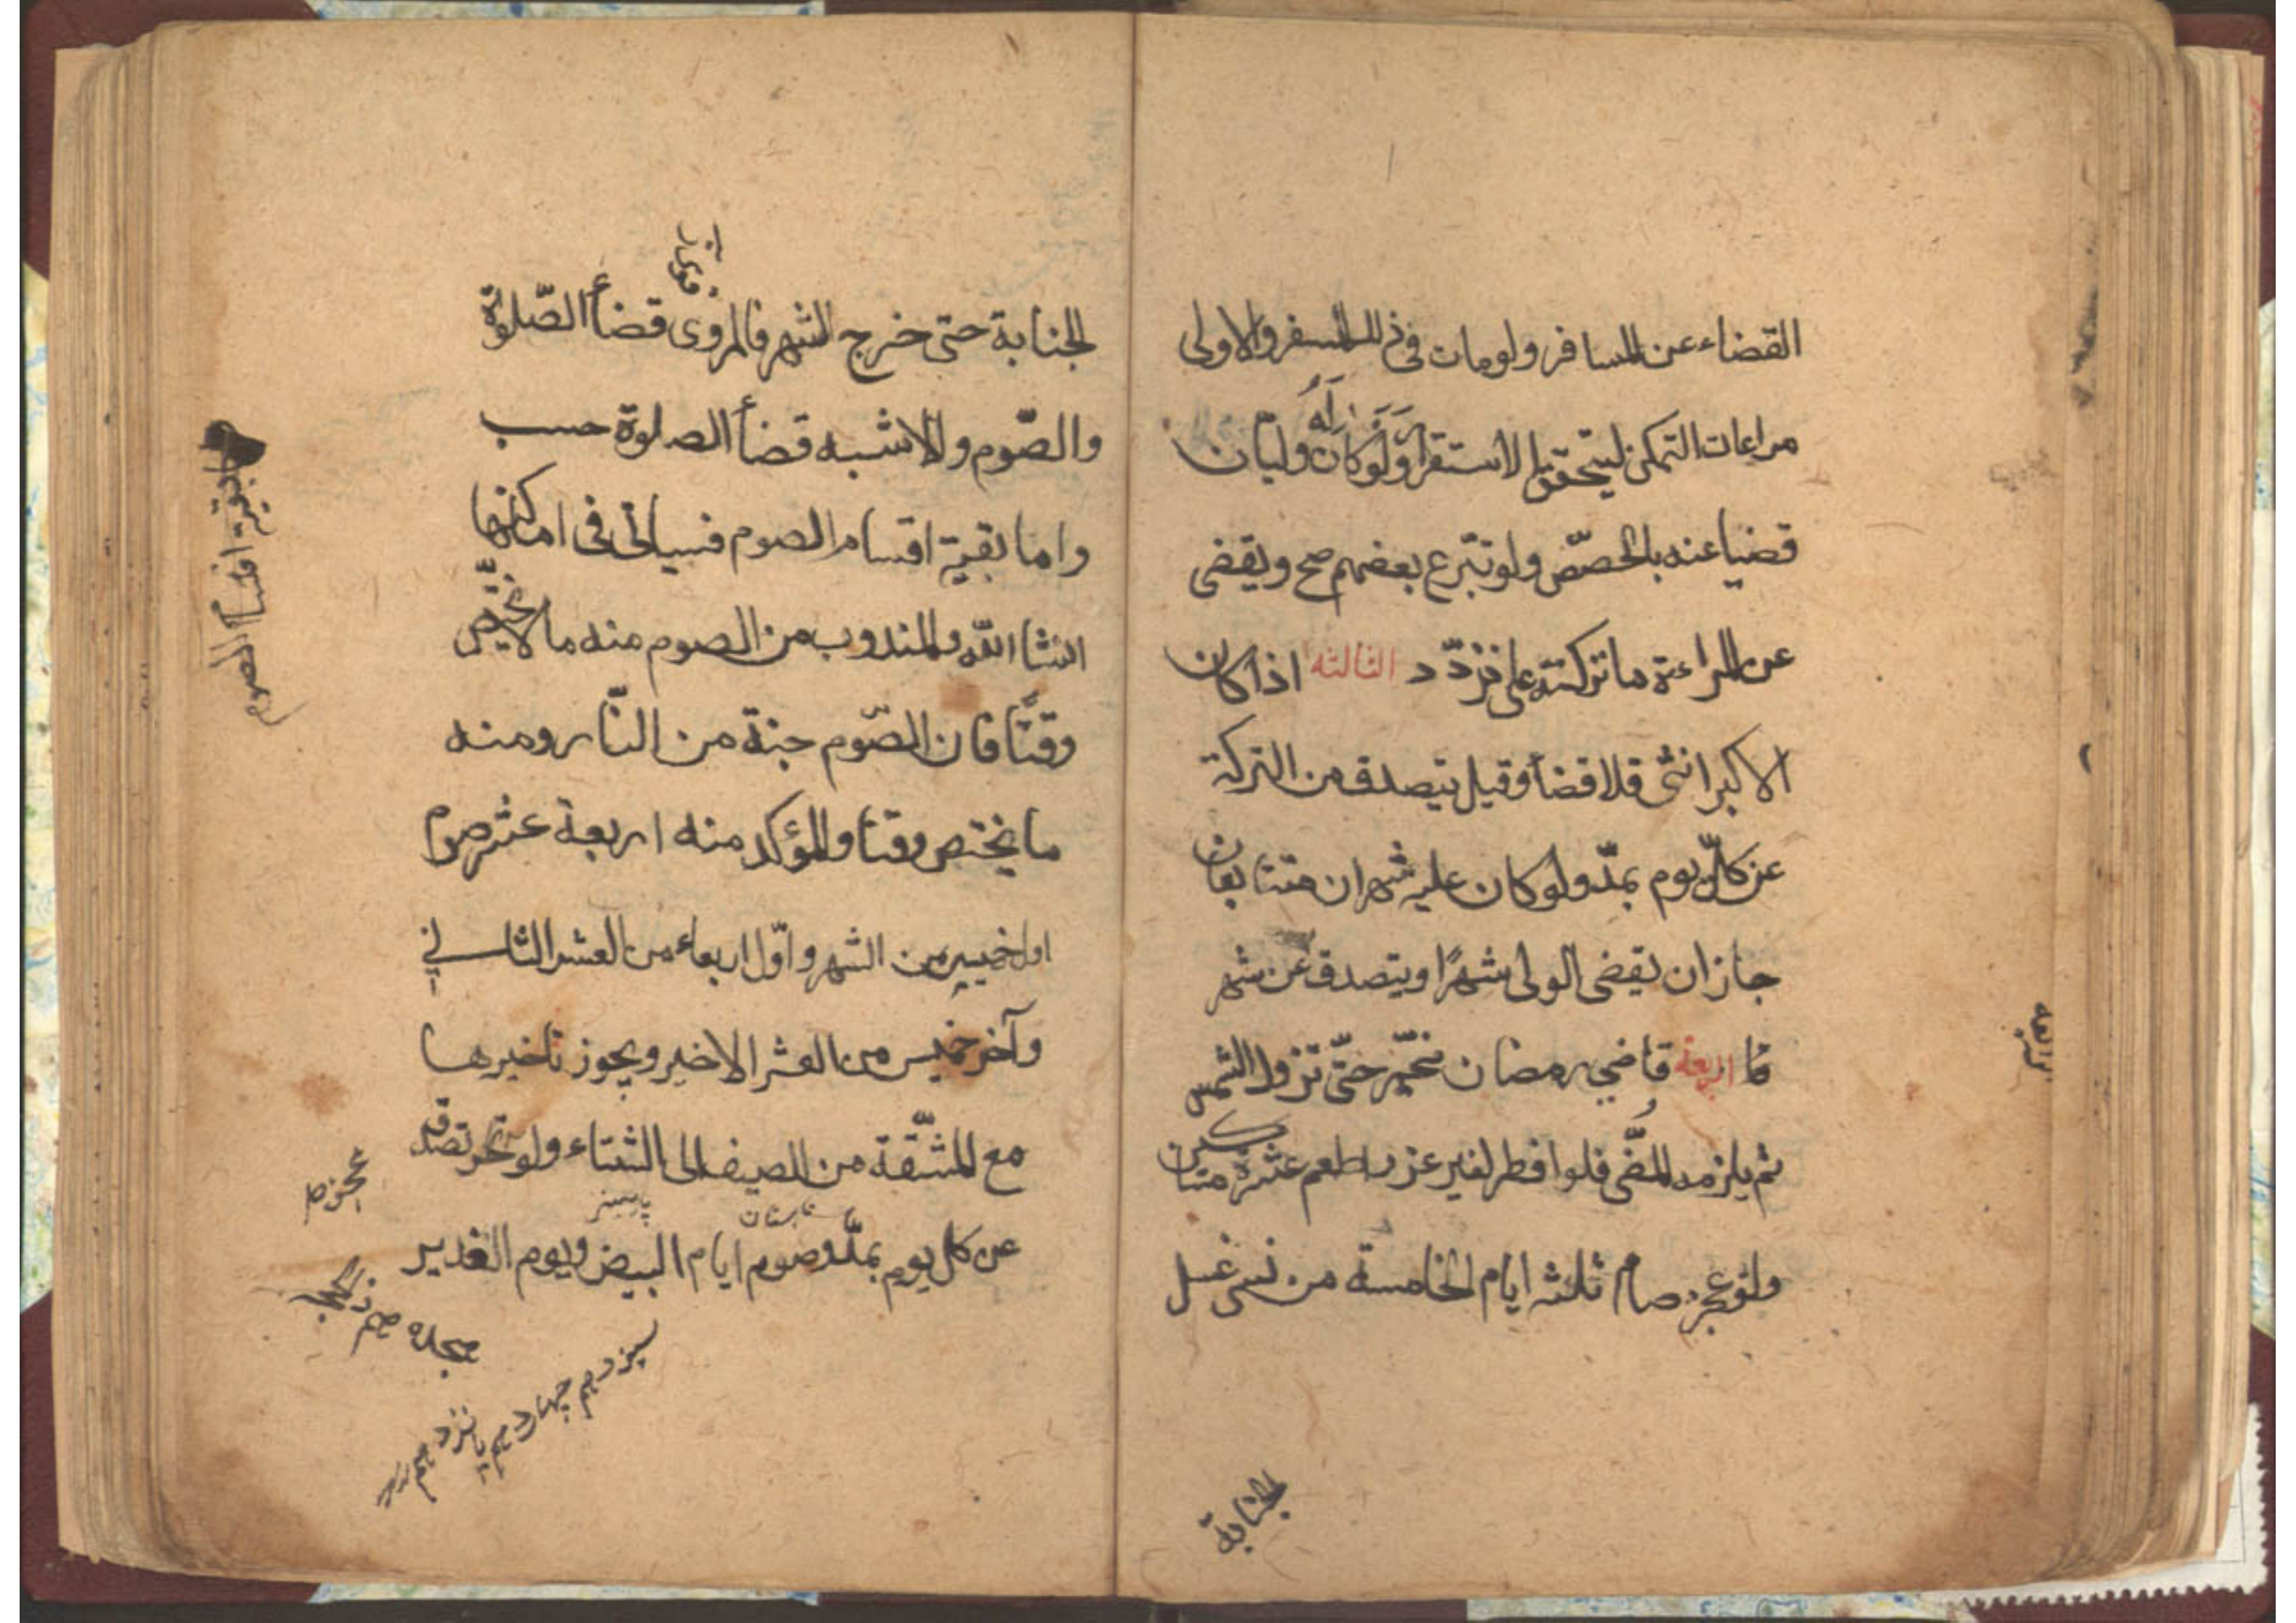 القضاء عن المسافر ولو مات في ذلك السفر والاولى
مراعات التمكن ليتحقق الاستقرار ولو كان له وليان
قضيا عنه بالحصص ولو تبرع بعضهم صح ويقضى
عن المراءة ما تركته على تردد الثالثه اذا كان
الاكبر انثى فلا قضأ وقيل يتصدق من التركة
عن كل يوم بمدّ ولو كان عليه شهران متتابعان
جاز ان يقضى الولى شهرًا ويتصدق عن شهر
الرابعة قاضي رمضان مخيّر حتّى تزول الشمس
ثم يلزمه المضّى فلو افطر لغير عذر اطعم عشرة مساكين
ولو عجز صام ثلثه ايام الخامسة من نسى غسل
الجنابة
الجنابة حتى خرج الشهر فالمروى قضأ الصّلوة
والصّوم والاشبه قضأ الصلوة حسب
واما بقية اقسام الصوم فسياتى فى اماكنها
انشا الله والمندوب من الصوم منه ما لا يختصّ
وقتًا فان الصّوم جنة من النّار ومنه
ما يختص وقتا والمؤكد منه اربعة عشر صوم
اول خميس من الشهر واوّل اربعاء من العشر الثاني
وآخر خميس من العشر الاخير ويجوز تاخيرها
مع المشّقة من الصيف الى الشتاء ولو عجز تصدق
عن كل يوم بمدّ وصوم ايام البيض ويوم الغدير
تابستان
بقية اقسام الصوم
عجز ط
سيزدهم چهاردهم پانزدهم